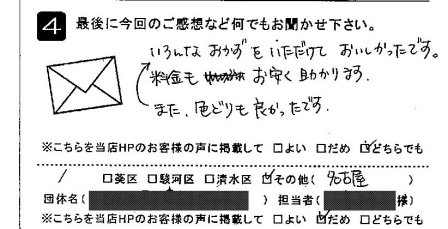 4 最後に今回のご感想など何でもお聞かせ下さい。
いろんな おかずを いただけて おいしかったです。
料金も お安く 助かります。
また、色どりも 良かったです。
※こちらを当店HPのお客様の声に掲載して □よい □だめ ☑どちらでも
/ □葵区 □駿河区 □清水区 ☑その他( 名古屋 )
団体名( ) 担当者( 様)
※こちらを当店HPのお客様の声に掲載して □よい ☑だめ □どちらでも